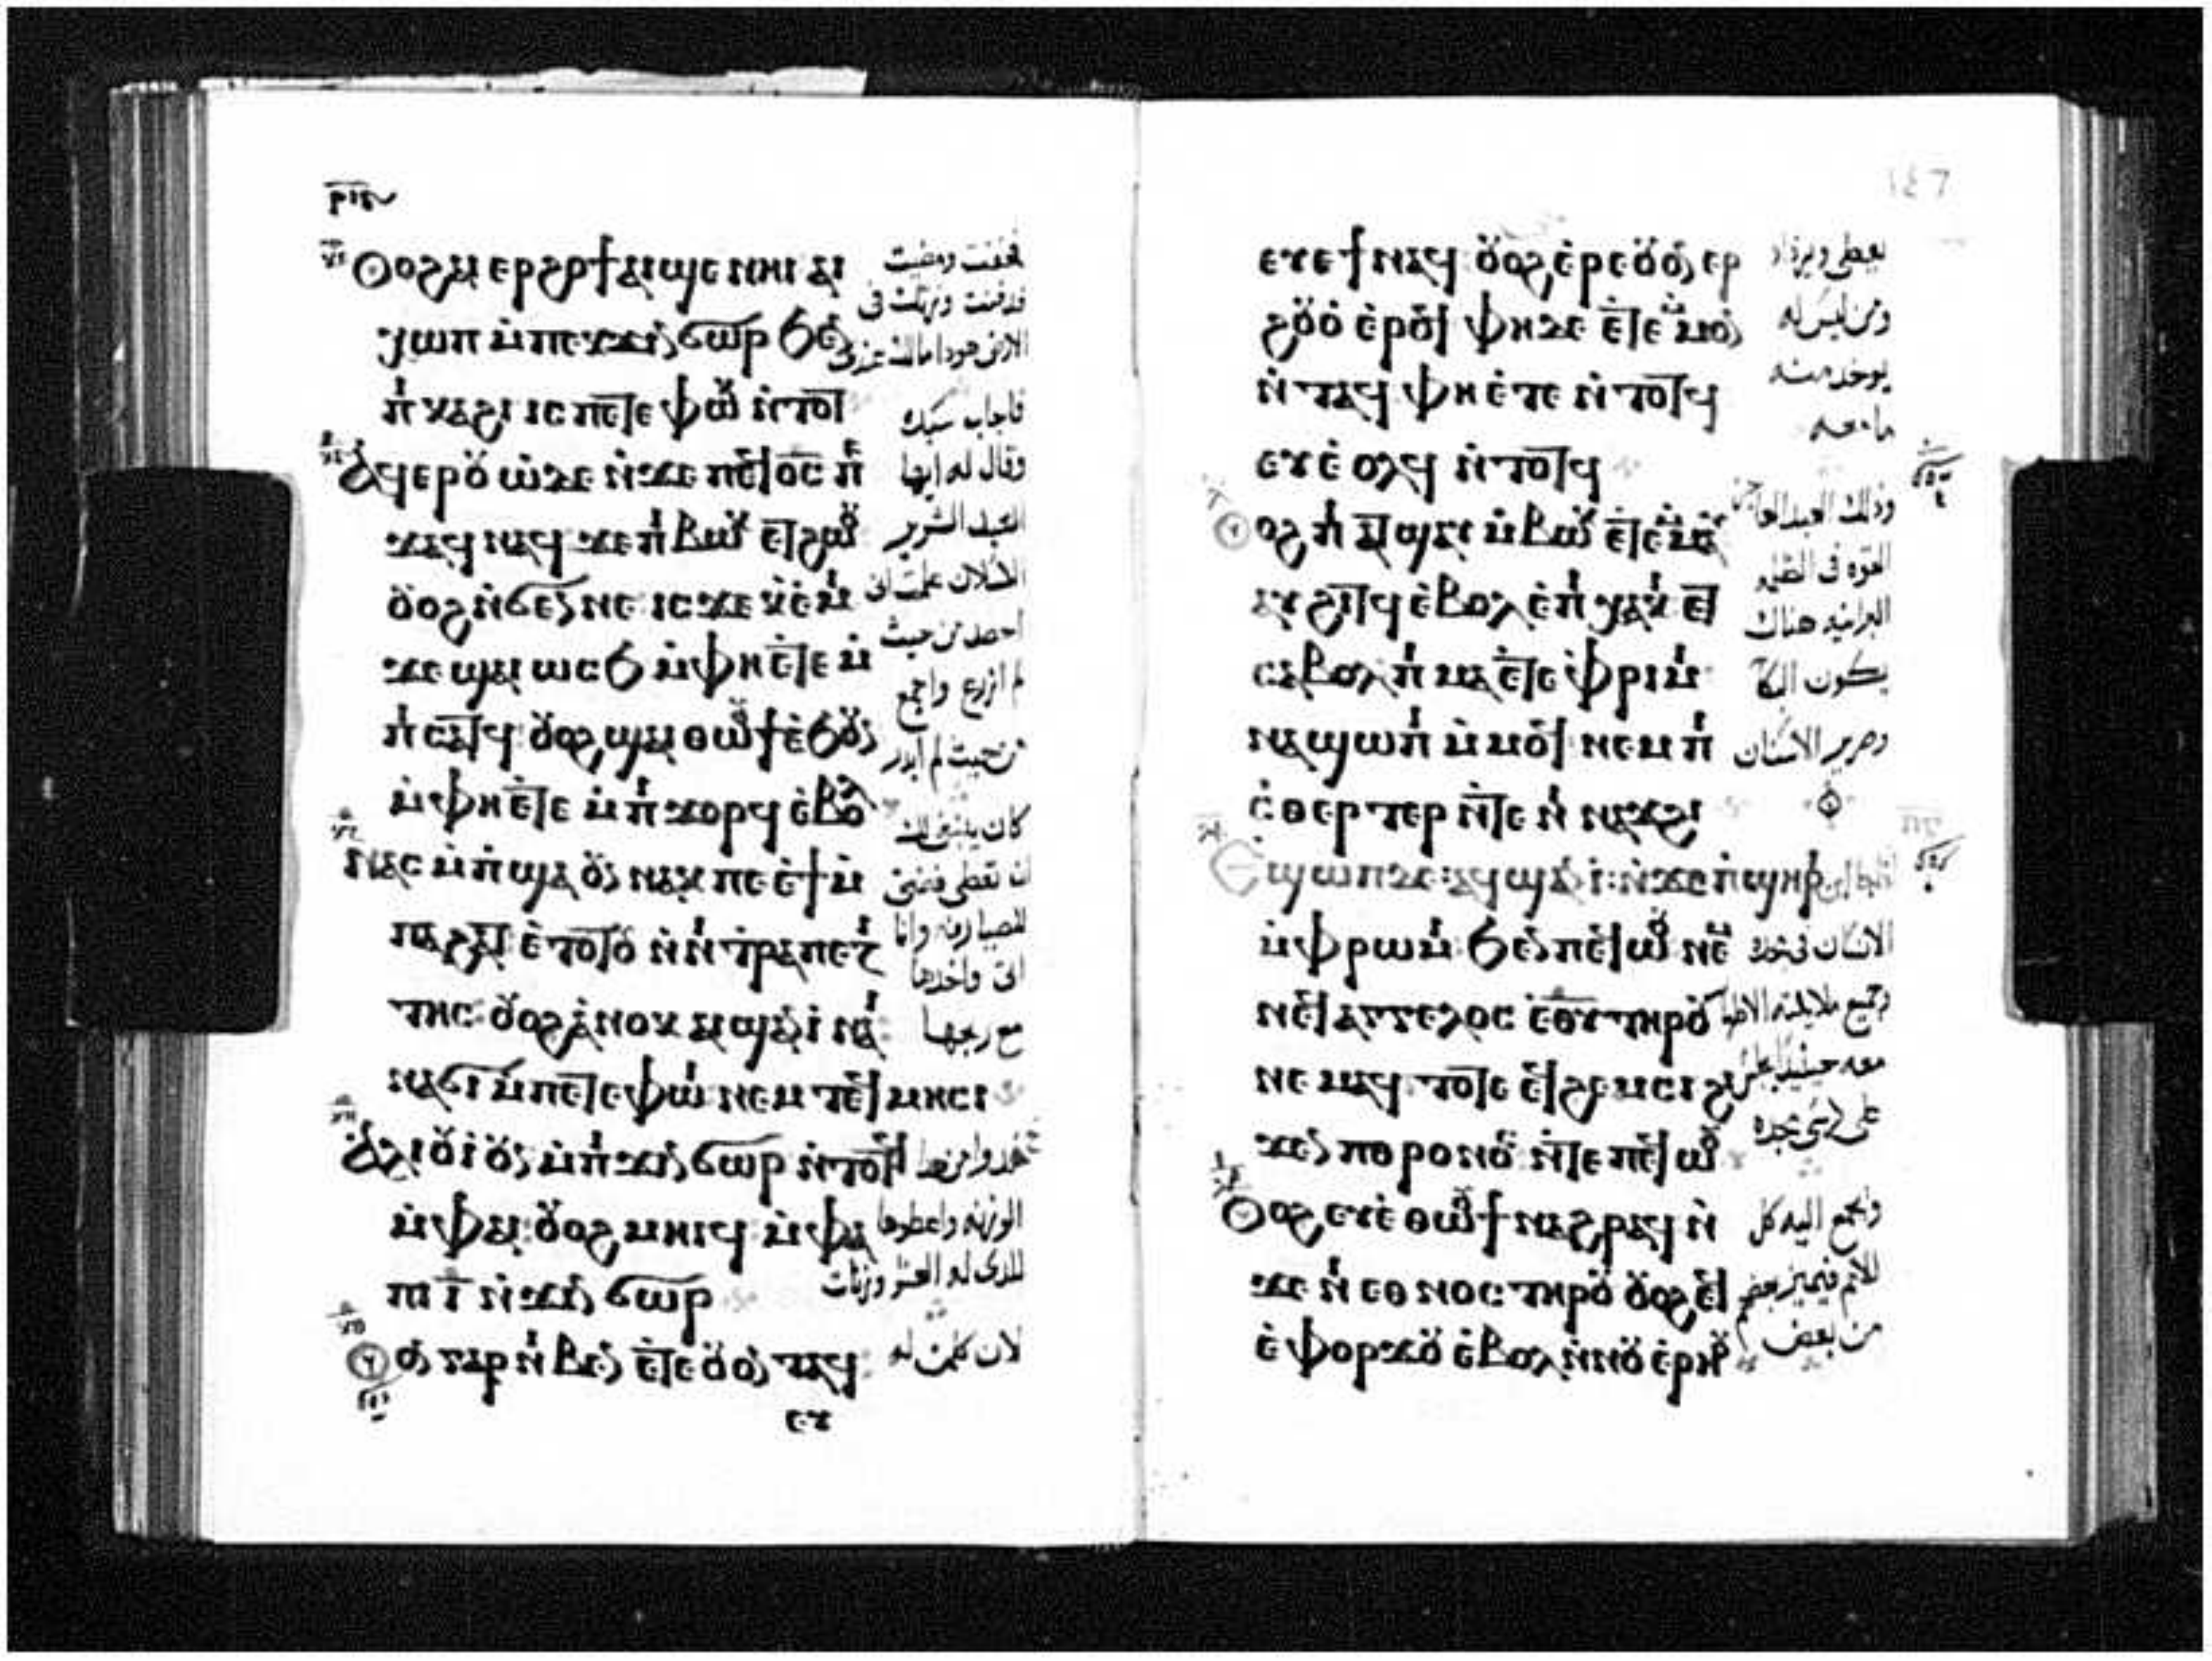 Ⲟⲟϩ ⲁⲓ ⲉⲣϩⲟϯ ⲁⲓϣⲉ ⲛⲏⲓ ⲁⲓ
ⲭⲱⲡ ⲙ̀ⲡⲉⲕϫⲓⲛϭⲱⲣ ϧⲉⲛ
ⲡ̀ⲕⲁϩⲓ ⲓⲥ ⲡⲉⲧⲉ ⲫⲱⲕ ⲛ̀ⲧⲟⲧⲕ
ⲁϥⲉⲣⲟⲩⲱ ⲇⲉ ⲛ̀ϫⲉ ⲡⲉϥϭⲟⲓⲥ ⲡⲉ
ϫⲁϥ ⲛⲁϥ ϫⲉ ⲡⲓⲃⲱⲕ ⲉⲧϩⲱⲟⲩ
ⲟⲩⲟϩ ⲛ̀ϭⲉⲛⲛⲉ ⲓⲥϫⲉ ⲕ̀ⲉ̀ⲙⲓ
ϫⲉ ϣⲁⲓ ⲱⲥϧ ⲙ̀ⲫⲏⲉⲧⲉ ⲙ̀
ⲡⲓⲥⲁⲧϥ ⲟⲩⲟϩ ϣⲁⲓ ⲑⲱⲟⲩϯ ⲉ̀ϧⲟⲩⲛ
ⲙ̀ⲫⲏⲉⲧⲉ ⲙ̀ⲡⲓϫⲟⲣϥ ⲉ̀ⲃⲟⲗ
ⲛⲁⲥ ⲙ̀ⲡϣⲁ ⲟⲩⲛ ⲛⲁⲕ ⲡⲉ ⲉ̀ϯ ⲙ̀
ⲡⲁϩⲁⲧ ⲉ̀ⲧⲟⲧⲟⲩ ⲛ̀ⲛⲓ ⲧ̀ⲣⲁⲡⲉⲍⲓ
ⲧⲏⲥ ⲟⲩⲟϩ ⲁ̀ⲛⲟⲕ ⲁⲓϣⲁⲛ ⲓ̀ ⲛⲁⲓ
ⲛⲁϭⲓ ⲙ̀ⲡⲉⲧⲉ ⲫⲱⲓ ⲛⲉⲙ ⲧⲉϥⲙⲏⲥⲓ
ⲁⲗⲓⲟⲩⲓ ⲟⲩⲛ ⲙ̀ⲡⲓϫⲓⲛϭⲱⲣ ⲛ̀ⲧⲟⲧϥ
ⲙ̀ⲫⲁⲓ ⲟⲩⲟϩ ⲙⲏⲓϥ ⲙ̀ⲫⲁ
ⲡⲓ ⲓ̅ ⲛ̀ϫⲓⲛϭⲱⲣ
ⲟⲛ ⲅⲁⲣ ⲛⲓⲃⲉⲛ ⲉ̀ⲧⲉ ⲟⲩⲟⲛ ⲧⲁϥ
ⲉⲩ
فخفت ومضيت
فدفنت وزنتك فى
الارض هوذا مالك عندى
فاجاب سيده
وقال له ايها
العبد الشرير
الكسلان علمت انى
احصد من حيث
لم ازرع واجمع
من حيث لم ابدر
كان ينبغى لك
ان تعطى فضتى
للصيارفه وانا
اتى واخدها
مع ربحها
خدوا من هدا
الوزنه واعطوها
للذى له العشر وزنات
لان كلمن له
١٤٦
ⲉⲩⲉ ϯ ⲛⲁϥ ⲟⲩⲟϩ ⲉ̀ⲣⲉ ⲟⲩⲟⲛ ⲉⲣ
ϩⲟⲩⲟ̀ ⲉ̀ⲣⲟϥ ⲫⲏ ⲇⲉ ⲉ̀ⲧⲉ ⲙ̀ⲙⲟⲛ
ⲛ̀ⲧⲁϥ ⲫⲏ ⲉ̀ⲧⲉ ⲛ̀ⲧⲟⲧϥ
ⲉⲩⲉ̀ ⲟⲗϥ ⲛ̀ⲧⲟⲧϥ
ⲟⲟϩ ⲡⲓ ⲁⲧϣⲁⲩ ⲙ̀ⲃⲱⲕ ⲉ̀ⲧⲉⲙⲙⲁⲩ
ϩⲓⲧϥ ⲉ̀ⲃⲟⲗ ⲉ̀ⲡⲓ ⲭⲁⲕⲓ ⲉⲧ
ⲥⲁⲃⲟⲗ ⲡⲓ ⲙⲁ ⲉ̀ⲧⲉ ⲫ̀ⲣⲓⲙⲓ
ⲛⲁϣⲱⲡⲓ ⲙ̀ⲙⲟϥ ⲛⲉⲙ ⲡⲓ
ⲥ̀ⲑⲉⲣⲧⲉⲣ ⲛ̀ⲧⲉ ⲛⲓ ⲛⲁϫϩⲓ
Ⲉϣⲱⲡ ⲇⲉ ⲁϥϣⲁⲛ ⲓ̀ ⲛ̀ϫⲉ ⲡ̀ϣⲏⲣⲓ
ⲙ̀ⲫⲣⲱⲙⲓ ϧⲉⲛ ⲡⲉϥⲱⲟⲩ ⲛⲉⲙ
ⲛⲉϥⲁⲅⲅⲉⲗⲟⲥ ⲉⲑⲩ ⲧⲏⲣⲟⲩ
ⲛⲉⲙⲁϥ ⲧⲟⲧⲉ ⲉϥϩⲉⲙⲥⲓ ϩⲓ
ϫⲉⲛ ⲡⲑⲣⲟⲛⲟⲥ ⲛ̀ⲧⲉ ⲡⲉϥⲱⲟⲩ
Ⲟⲟϩ ⲉⲩⲉ̀ ⲑⲱⲟⲩϯ ⲛⲁϩⲣⲁϥ ⲛ̀
ϫⲉ ⲛⲓ ⲉⲑⲛⲟⲥ ⲧⲏⲣⲟⲩ ⲟⲩⲟϩ ⲉϥ
ⲉ̀ ⲫⲟⲣϫⲟⲩ ⲉ̀ⲃⲟⲗ ⲛ̀ⲛⲟⲩ ⲉ̀ⲣⲏⲟⲩ
يعطى ويزداد
ومن ليس له
يوخد منه
ما معه
وذلك العبد
القوه فى الظلمه
البرانيه هناك
يكون البكآ
وصرير الاسنان
الانسان فى مجده
وجميع ملايكته الاطهار
معه حينيذ يجلس
على كرسى مجده
ويجمع اليه كل
الامم فيميز بعضهم
من بعض